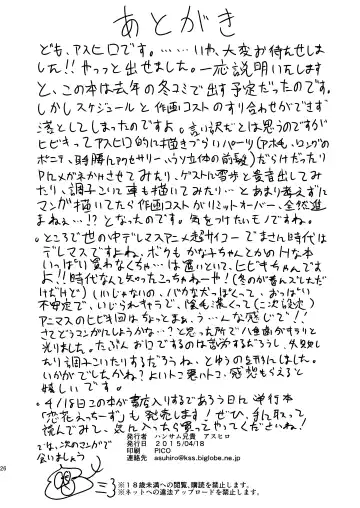 あとがき
ども、アスヒロです。……いや、大変お待たせしま
した!!やっっと出せました。一応説明いたします
と、この本は去年の冬コミで出す予定だったのです。
しかしスケジュールと作画コストのすり合わせができず
落としてしまったのですよ。言い訳だとは思うのですが
ヒビキってアスヒロ的に描きづらいパーツ(アホ毛、ロングの
ポニテ、
だらけだったり
Pにメガネかけさせてみたり、ゲストに雪歩と
出してみ
たり、調子こいて車も描いてみたり…とあまり考えずに
マンガ描いてたら作画コストがリミットオーバー、全然進
まねぇ…!?となったのです。気をつけたいモノですね。
。ところで世の中デレマスアニメ超サイコーでまさに時代は
デレマスですよね、ボクもかな子ちゃんとかのHな本
いっぱい買わなくちゃ…は置いといて、ヒビキちゃんです
よ!!時代なんて知ったこっちゃねーや!(冬のが
だけど)
アニマスのヒビキ回はちょっとまぁ、う…んな感じで!!
さてどうマンガにしようかな…?と思った所で八重歯がキラリと
光りました。たぶんお口でするのは苦手するだろうし、失敗し
たり調子こいたりするだろうね、とゆうの
しました。
いかがでしたかね?よいトコ悪いトコ、感想もらえると
嬉しいです。
。4/18日この本が書店入りするであろう日に単行本
「恋花えっちーず」も発売します!ぜひ、手に取って
読んでみて、気に入ったら買ってやってくださいね!
では、次のマンガで
会いましょう
発行 ハンサム兄貴 アスヒロ
発行日 2015/04/18
印刷 PICO
連絡先 asuhiro@kss.biglobe.ne.jp
※18歳未満への閲覧、購読を禁止します。
※ネットへの違法アップロードを禁止します。
26